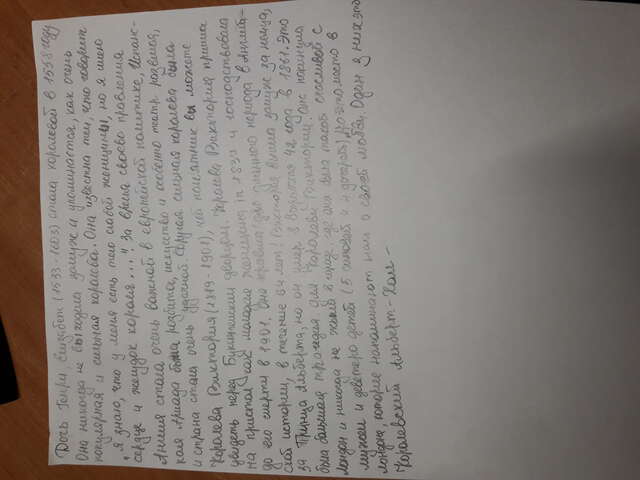 Дочь Генри, Елизабет (1533-1603) стала королевой в 1558 году
Она никогда не выходила замуж и упоминается, как очень
популярная и сильная королева. Она известна тем, что говорит
"я знаю, что у меня есть тело слабой женщины, но я имею
сердце и желудок короля..." За время своево правления
Англия стала очень важной в европейской политике, Испанс-
кая Армада была разбита, искуство и особенно театр развился,
и страна стала очень удачной. Другая сильная королева была
Королева Виктория (1819-1901), чей памятник вы можете
увидеть перед Букингемским дворцом. Королева Виктория пришла
на пристол как молодая женщина in 1837 и господствовала
до его смерти в 1901. Она правила дво длинного периода в Англий-
ской истории, в течение 64 лет! Виктория вышла замуж за немца,
за Принца Альберта, но он умер в возрасте 42 года в 1861. Это
была большая трагедия для Королевы Виктории. Она покинула
Лондон и никогда не жила в городе где она была такой счасливой с
мужем и девятеро детей (5 сыновей и 4 дочерей). много место в
Лондоне, которые напоминают нам о своей любви. Один з них это
Королевский Альберт-Холл -